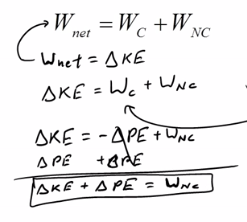 W_net = W_C + W_NC
W_net = ΔKE
ΔKE = W_C + W_NC
ΔKE = -ΔPE + W_NC
ΔPE +ΔPE
ΔKE + ΔPE = W_NC